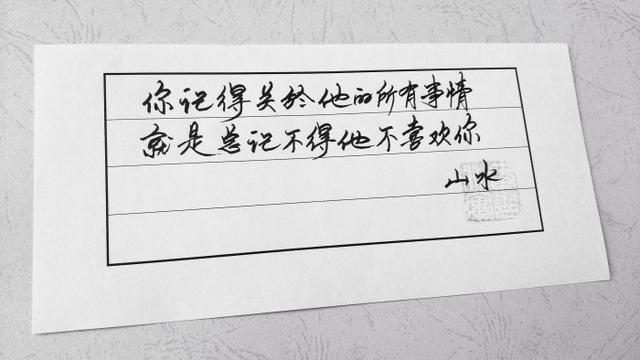 你记得关於他的所有事情
就是总记不得他不喜欢你
山水